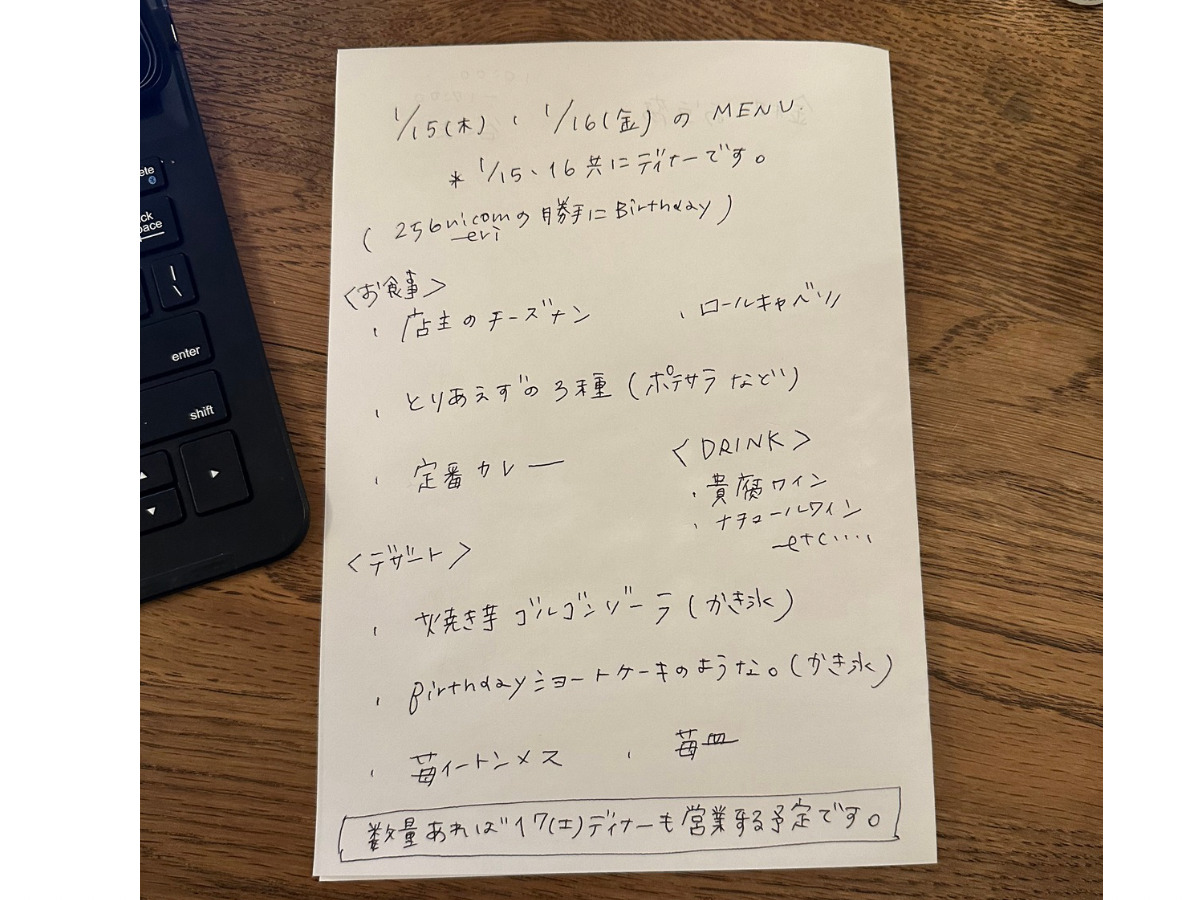 1/15(木)、1/16(金)のMENU.
* 1/15、16共にディナーです。
(256nicomの勝手にBirthday)
eri
<お食事>
・店主のチーズナン ・ロールキャベツ
・とりあえずの3種(ポテサラなど)
・定番カレー
<DRINK>
・貴腐ワイン
・ナチュールワイン
etc....
<デザート>
・焼き芋ゴルゴンゾーラ(かき氷)
・Birthdayショートケーキのような。(かき氷)
・苺イートンメス ・苺皿
数量あれば17(土)ディナーも営業する予定です。
ete
ck
pace
|
\
enter
shift